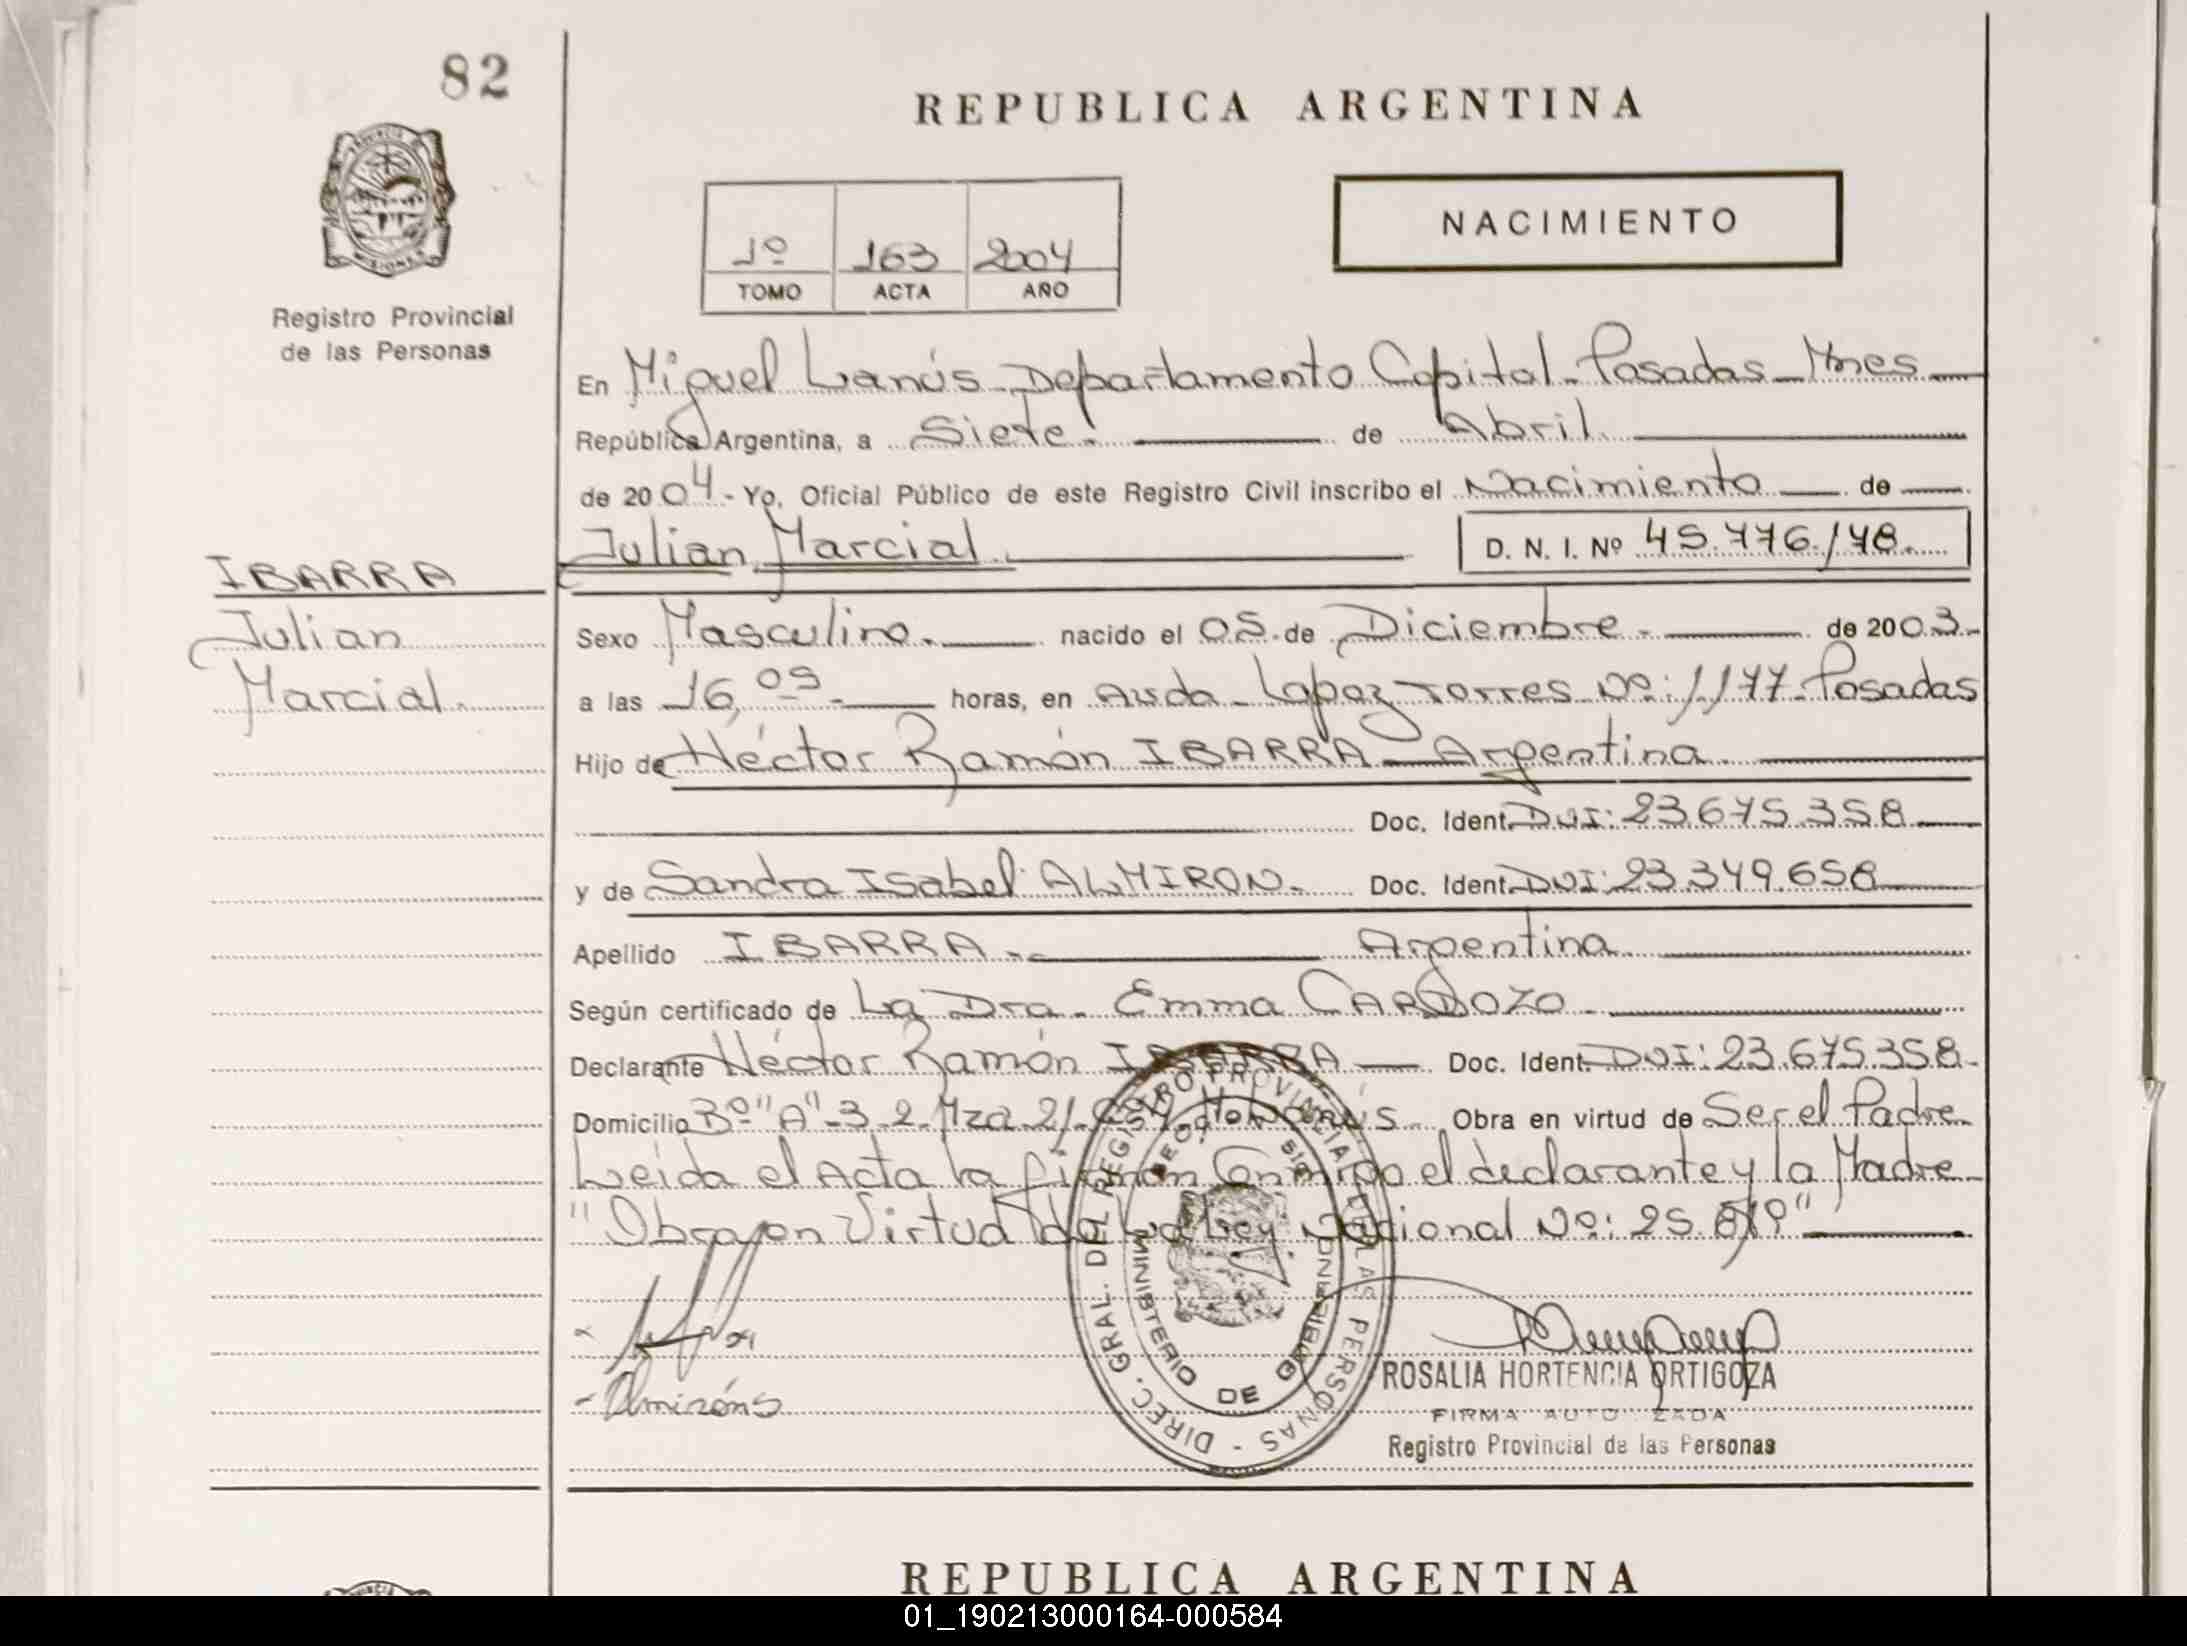 82
REPUBLICA ARGENTINA
PROVINCIA
MISIONES
Registro Provincial
de las Personas
1º 163 2004
TOMO ACTA AÑO
NACIMIENTO
En Miguel Lanús - Departamento Capital - Posadas - Mnes
República Argentina, a Siete de Abril
de 2004 - Yo, Oficial Público de este Registro Civil inscribo el Nacimiento de
Julian Marcial D. N. I. Nº 45.776.178.
IBARRA
Julian
Marcial.
Sexo Masculino. nacido el 05 de Diciembre - de 2003-
a las 16,05 - horas, en Avda - Lopez Torres Nº: 1177 - Posadas
Hijo de Héctor Ramón IBARRA - Argentina.
Doc. Ident. DNI: 23.675.358
y de Sandra Isabel ALMIRON. Doc. Ident. DNI: 23.349.658
Apellido IBARRA. - Argentina.
Según certificado de La Dra. Emma CARDOZO -
Declarante Héctor Ramón IBARRA Doc. Ident. DNI: 23.675.358-
Domicilio Bº "A" - 3-2 - Mza 21- Obra en virtud de Ser el Padre
Leída el Acta la firman Conmigo el declarante y la Madre
"Obra en Virtud de La Ley Nacional Nº: 25.819"
Almirón S
DIREC. GRAL. DEL REGISTRO PROVINCIAL DE LAS PERSONAS -
MINISTERIO DE GOBIERNO
ROSALIA HORTENCIA ORTIGOZA
FIRMA AUTORIZADA
Registro Provincial de las Personas
REPUBLICA ARGENTINA
01_190213000164-000584